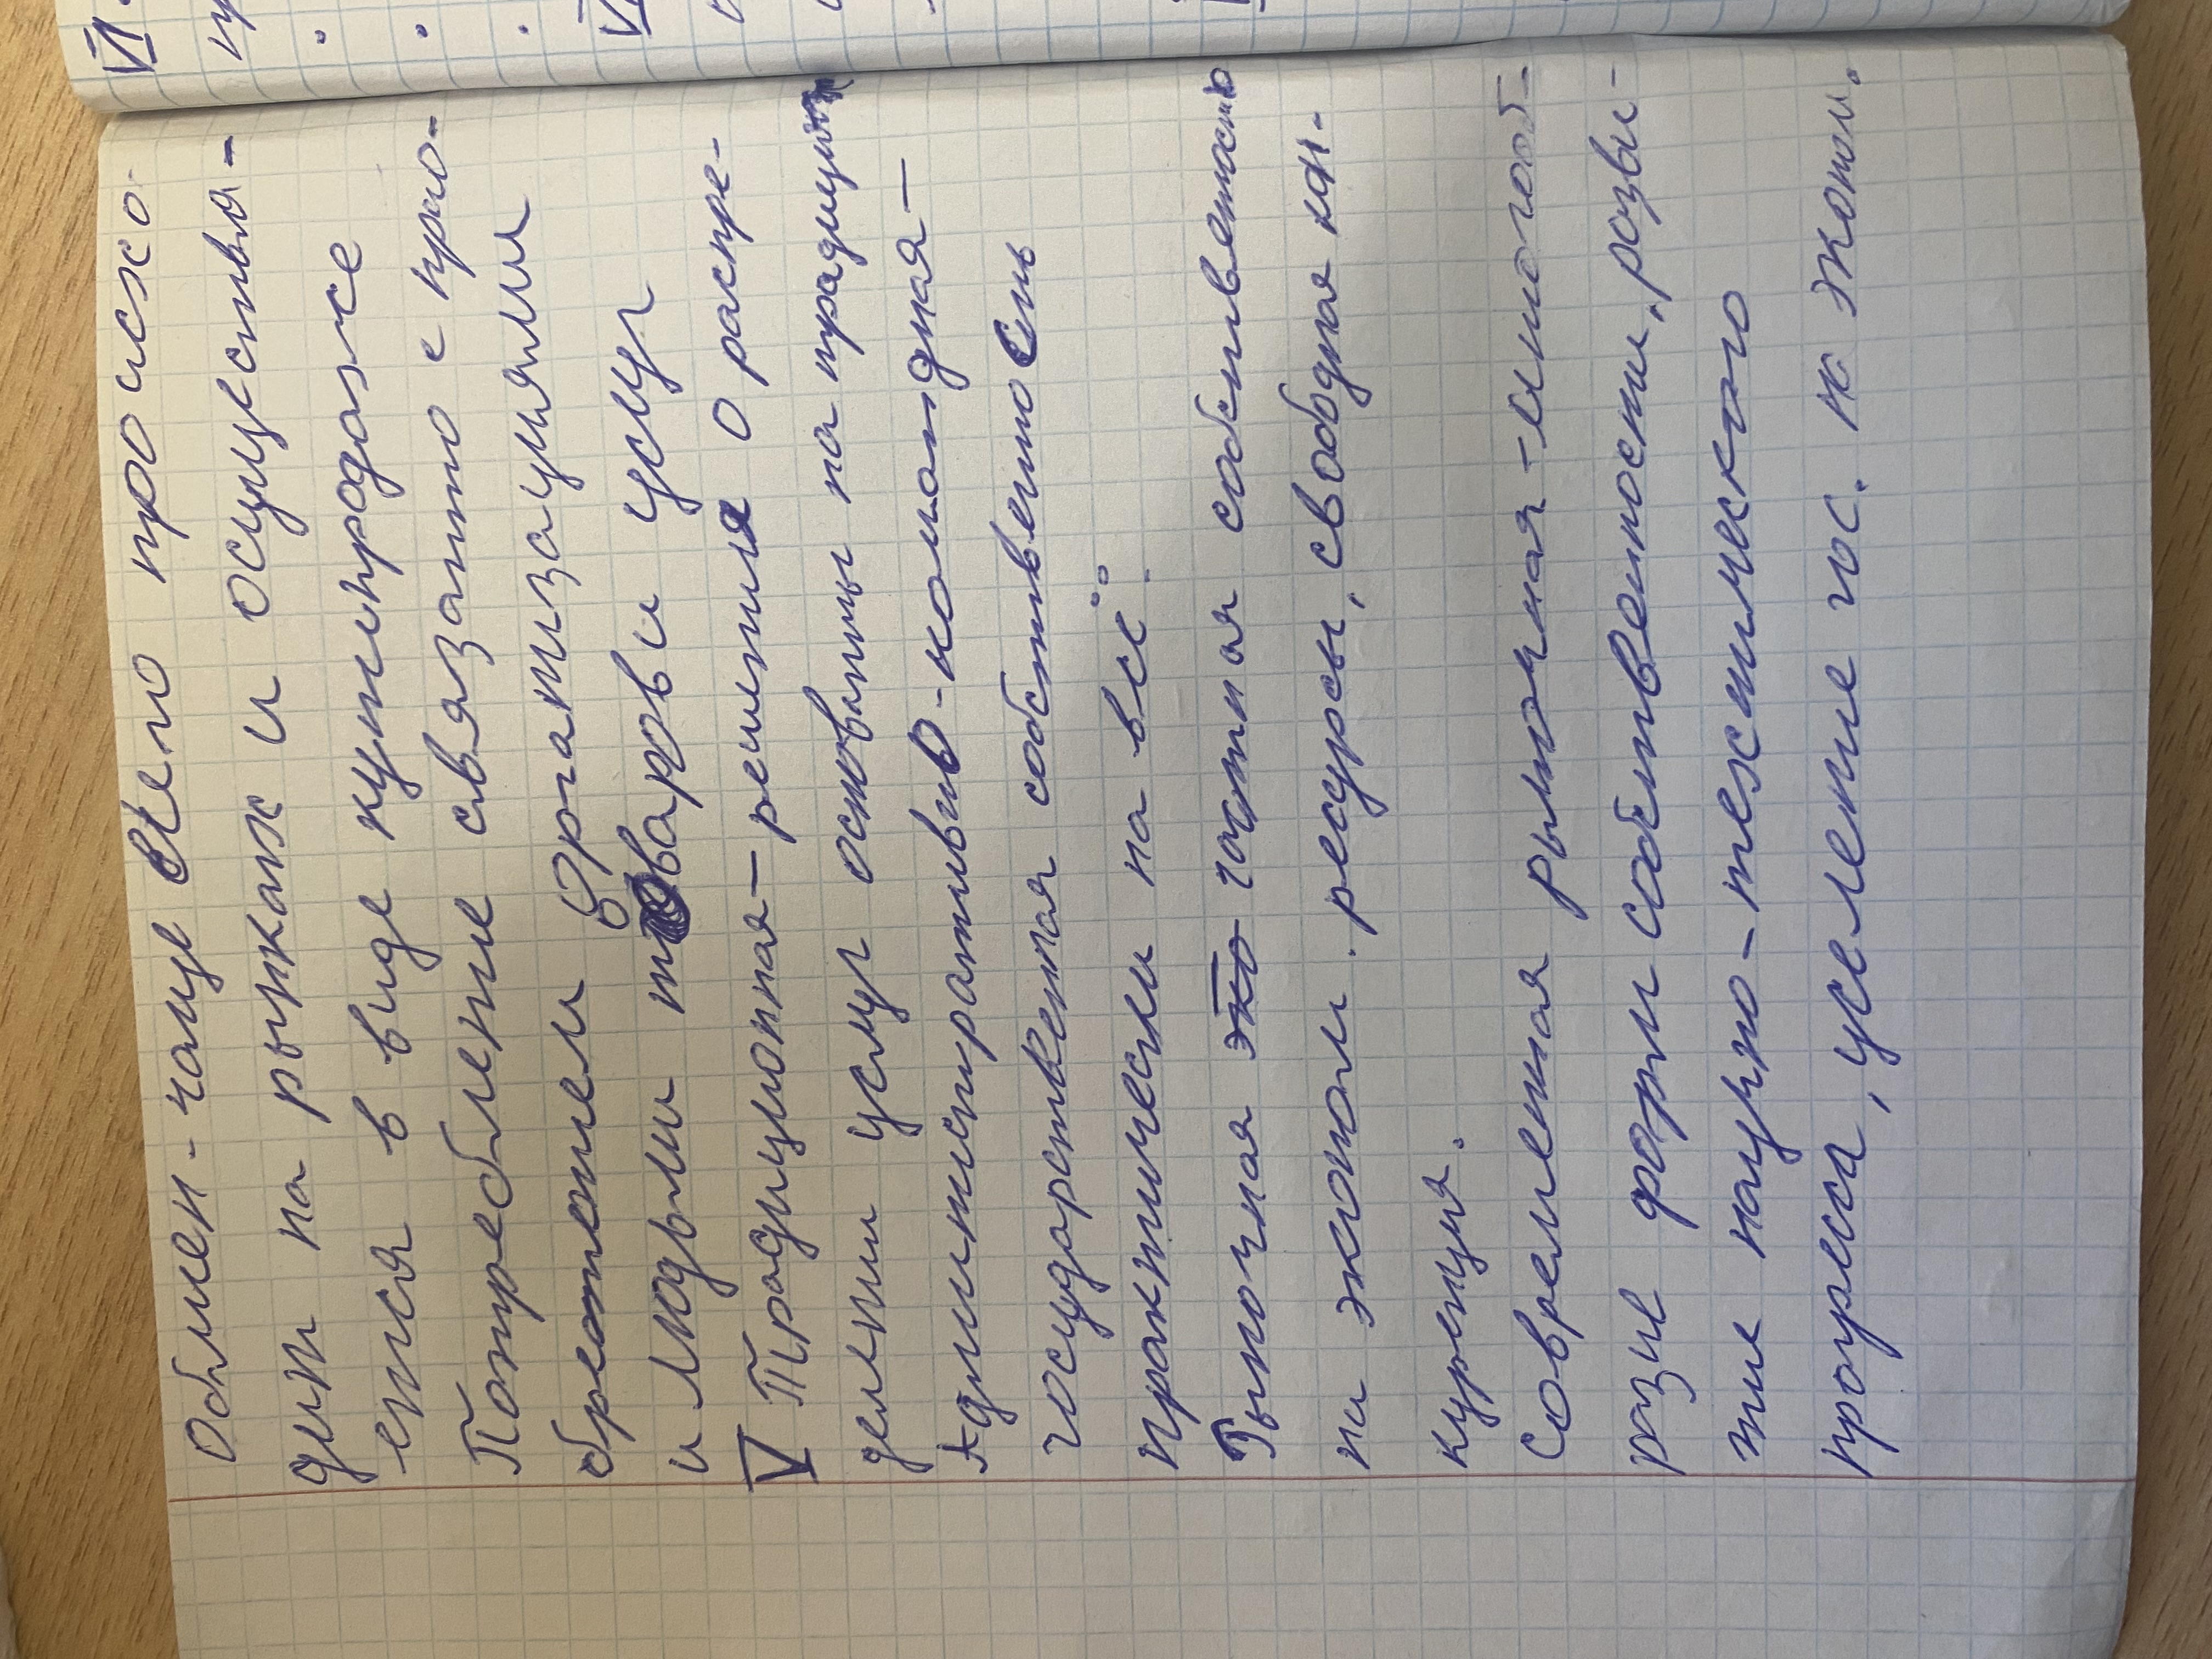 Обмен - чаще всего происхо-
дит на рынках и осуществля-
ется в виде купипродаже
Потребление связано с прио-
бретением Организациями
и людьми товаров и услуг
V Традиционная - решения о распре-
делении услуг основаны на традициях
Административно-командная -
государственная собственность
практически на всё.
Рыночная эко частная собственность
на эконом. ресурсы, свободная кон-
куренция.
Современная рыночная - многооб-
разие форм собственности, разви-
тие научно-технического
прогресса, усиление гос. на эконом.
VI.
VI